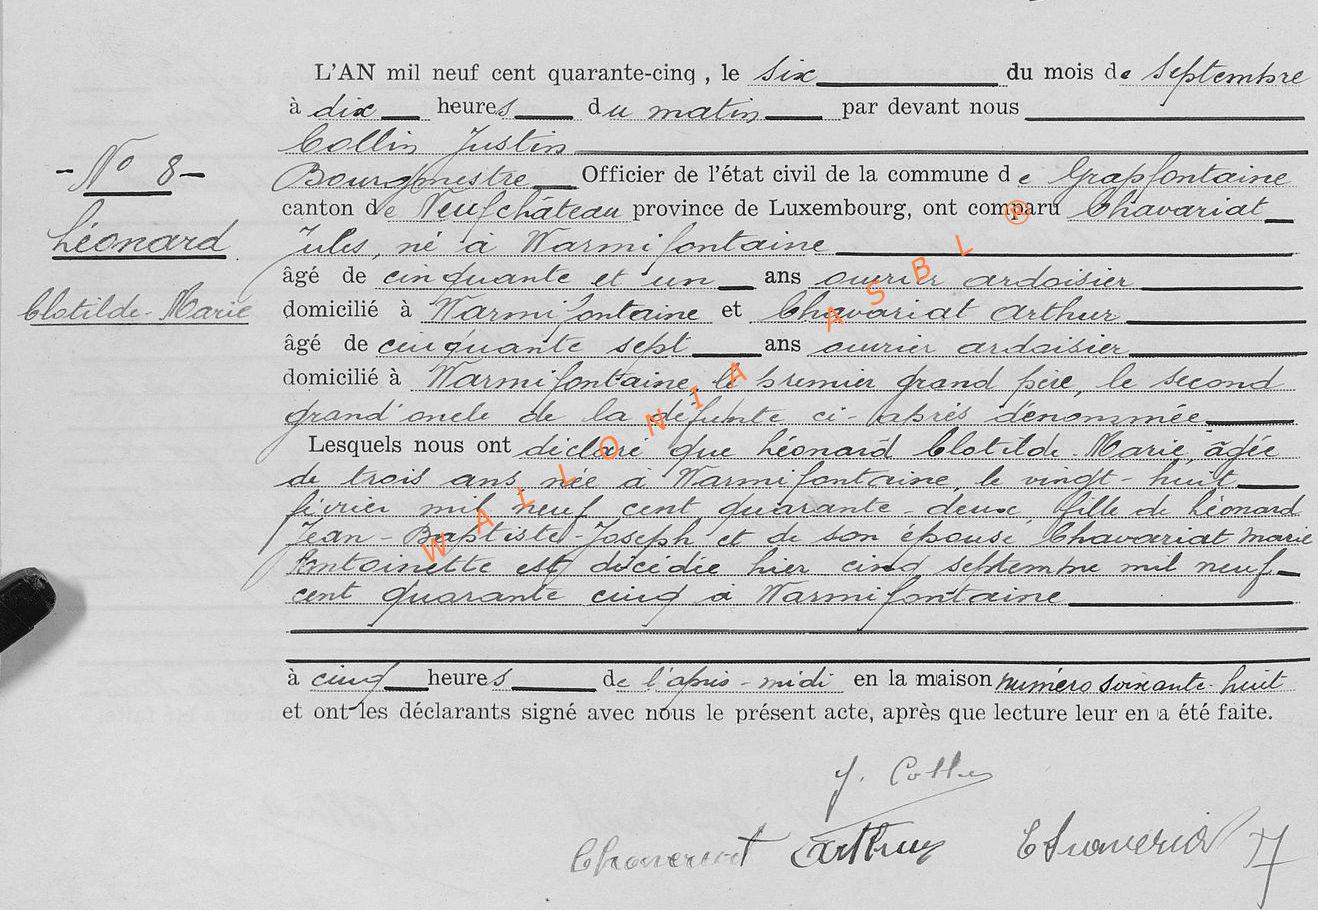 L'AN mil neuf cent quarante-cinq, le six du mois de septembre
à dix heures du matin par devant nous
Collin Justin
- N° 8 -
Bourgmestre Officier de l'état civil de la commune de Grapfontaine
canton de Neufchâteau province de Luxembourg, ont comparu Chavariat
Léonard
Jules, né à Warmifontaine
âgé de cinquante et un ans ouvrier ardoisier
Clotilde-Marie
domicilié à Warmifontaine et Chavariat Arthur
âgé de cinquante sept ans ouvrier ardoisier
domicilié à Warmifontaine, le premier grand père, le second
grand'oncle de la défunte ci-après dénommée
Lesquels nous ont déclaré que Léonard Clotilde-Marie, âgée
de trois ans, née à Warmifontaine, le vingt-huit
février mil neuf cent quarante-deux, fille de Léonard
Jean-Baptiste-Joseph et de son épouse Chavariat Marie
Antoinette est décédée hier cinq septembre mil neuf
cent quarante cinq à Warmifontaine
à cinq heures de l'après-midi en la maison numéro soixante-huit
et ont les déclarants signé avec nous le présent acte, après que lecture leur en a été faite.
J. Collin
Chavariat Arthur Chavariat J
WALLONIA ASBL ®